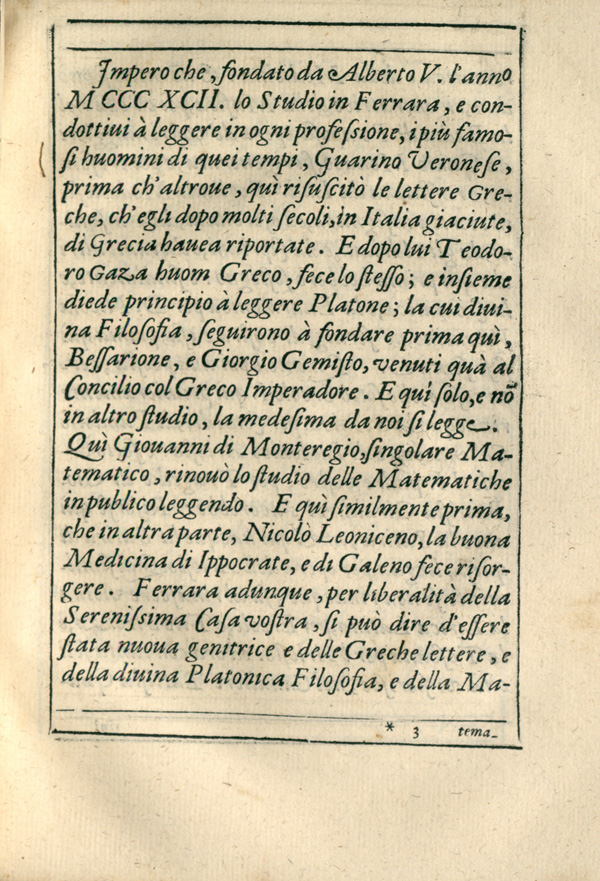 Impero che, fondato da Alberto V. l'anno
M CCC XCII. lo Studio in Ferrara, e con-
dottiui à leggere in ogni professione, i più famo-
si huomini di quei tempi, Guarino Veronese,
prima ch'altroue, quì risuscitò le lettere Gre-
che, ch'egli dopo molti secoli, in Italia giaciute,
di Grecia hauea riportate. E dopo lui Teodo-
ro Gaza huom Greco, fece lo stesso; e insieme
diede principio à leggere Platone; la cui diui-
na Filosofia, seguirono à fondare prima quì,
Bessarione, e Giorgio Gemisto, venuti quà al
Concilio col Greco Imperadore. E quì solo, e nõ
in altro studio, la medesima da noi si legge.
Quì Giouanni di Monteregio, singolare Ma-
tematico, rinouò lo studio delle Matematiche
in publico leggendo. E quì similmente prima,
che in altra parte, Nicolò Leoniceno, la buona
Medicina di Ippocrate, e di Galeno fece risor-
gere. Ferrara adunque, per liberalità della
Serenissima Casa vostra, si può dire d'essere
stata nuoua genitrice e delle Greche lettere, e
della diuina Platonica Filosofia, e della Ma-
* 3 tema-